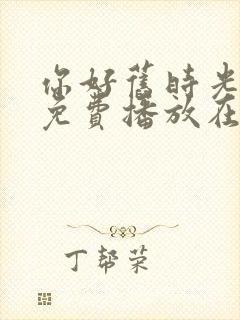 你好旧时光
免费播放在
丁帮荣